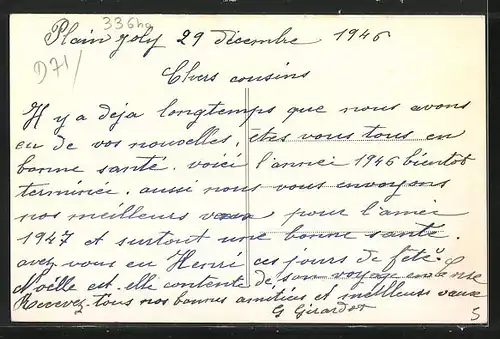 336ha
D71/
Plain joly 29 décembre 1946
Chers cousins
Il y a deja longtemps que nous avons
eu de vos nouvelles, êtes vous tous en
bonne santé. voici l'année 1946 bientot
terminée. aussi nous vous envoyons
nos meilleurs vœux pour l'année
1947 et surtout une bonne santé.
avez vous eu Henri ces jours de fête?
Noëlle est-elle contente de son voyage en
Recevez tous nos bonnes amitiées et meilleurs vœux
G Girardot
S